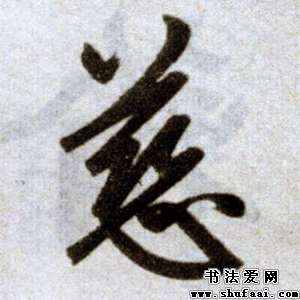 慈
书法爱网
www.shufaai.com